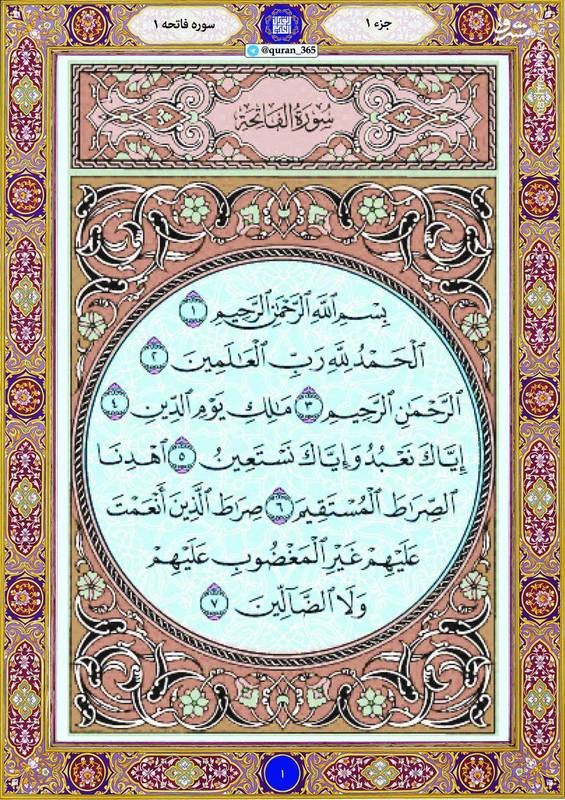 جزء ۱
سوره فاتحه ۱
@quran_365
سُورَةُ الفَاتِحَةِ
بِسْمِ اللَّهِ الرَّحْمَٰنِ الرَّحِيمِ ۝١
الْحَمْدُ لِلَّهِ رَبِّ الْعَالَمِينَ ۝٢
الرَّحْمَٰنِ الرَّحِيمِ ۝٣ مَالِكِ يَوْمِ الدِّينِ ۝٤
إِيَّاكَ نَعْبُدُ وَإِيَّاكَ نَسْتَعِينُ ۝٥ اهْدِنَا
الصِّرَاطَ الْمُسْتَقِيمَ ۝٦ صِرَاطَ الَّذِينَ أَنْعَمْتَ
عَلَيْهِمْ غَيْرِ الْمَغْضُوبِ عَلَيْهِمْ
وَلَا الضَّالِّينَ ۝٧
١